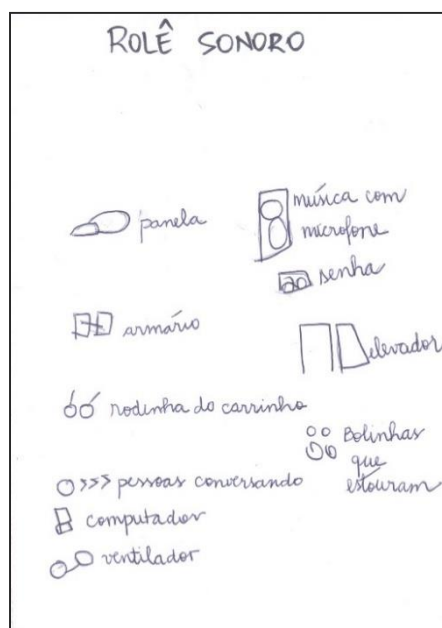 ROLÊ SONORO
panela
música com
microfone
senha
armário
elevador
rodinha do carrinho
Bolinhas
que
estouram
pessoas conversando
computador
ventilador